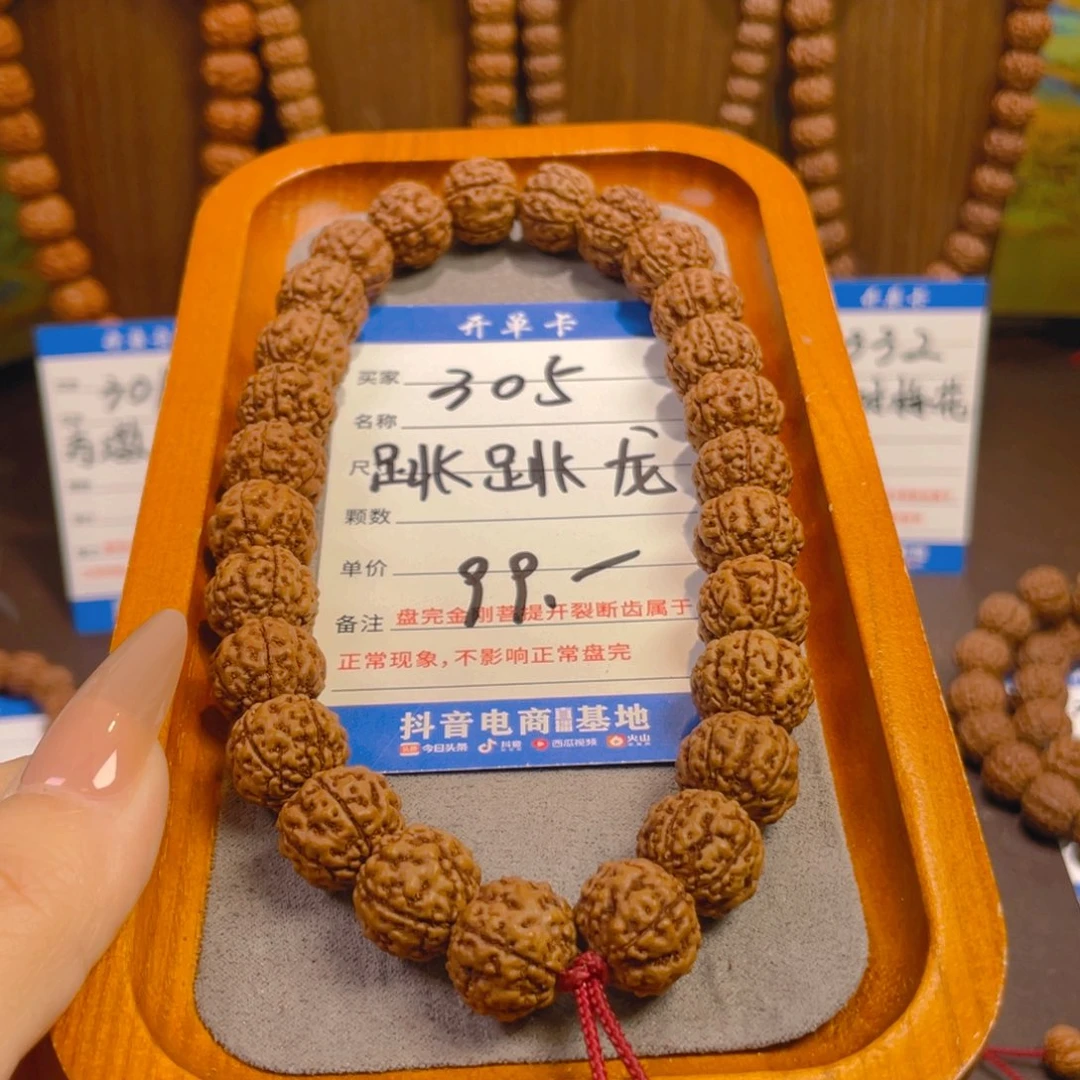 开单卡
买家 305
名称
跳跳龙
颗数
单价 99.一
备注 盘完金刚菩提开裂断齿属于
正常现象,不影响正常盘完
抖音电商直播基地
今日头条 抖音 西瓜视频 火山
开单卡
332